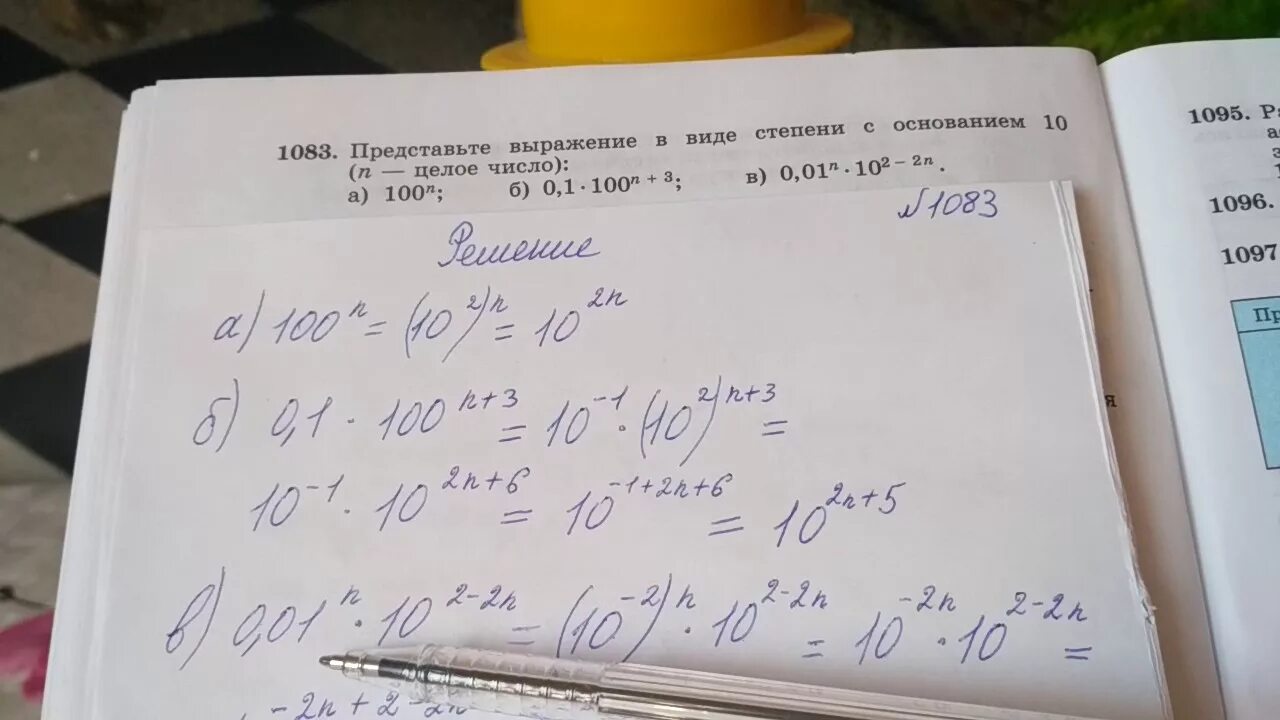 1083. Представьте выражение в виде степени с основанием 10
(n — целое число):
а) 100ⁿ; б) 0,1 · 100ⁿ ⁺ ³; в) 0,01ⁿ · 10² ⁻ ²ⁿ.
№1083
Решение
а) 100ⁿ = (10²)ⁿ = 10²ⁿ
б) 0,1 · 100ⁿ⁺³ = 10⁻¹ · (10²)ⁿ⁺³ =
10⁻¹ · 10²ⁿ⁺⁶ = 10⁻¹⁺²ⁿ⁺⁶ = 10²ⁿ⁺⁵
в) 0,01ⁿ · 10²⁻²ⁿ = (10⁻²)ⁿ · 10²⁻²ⁿ = 10⁻²ⁿ · 10²⁻²ⁿ =
⁻²ⁿ⁺²⁻²ⁿ
1095.
1096.
1097
Пр
я